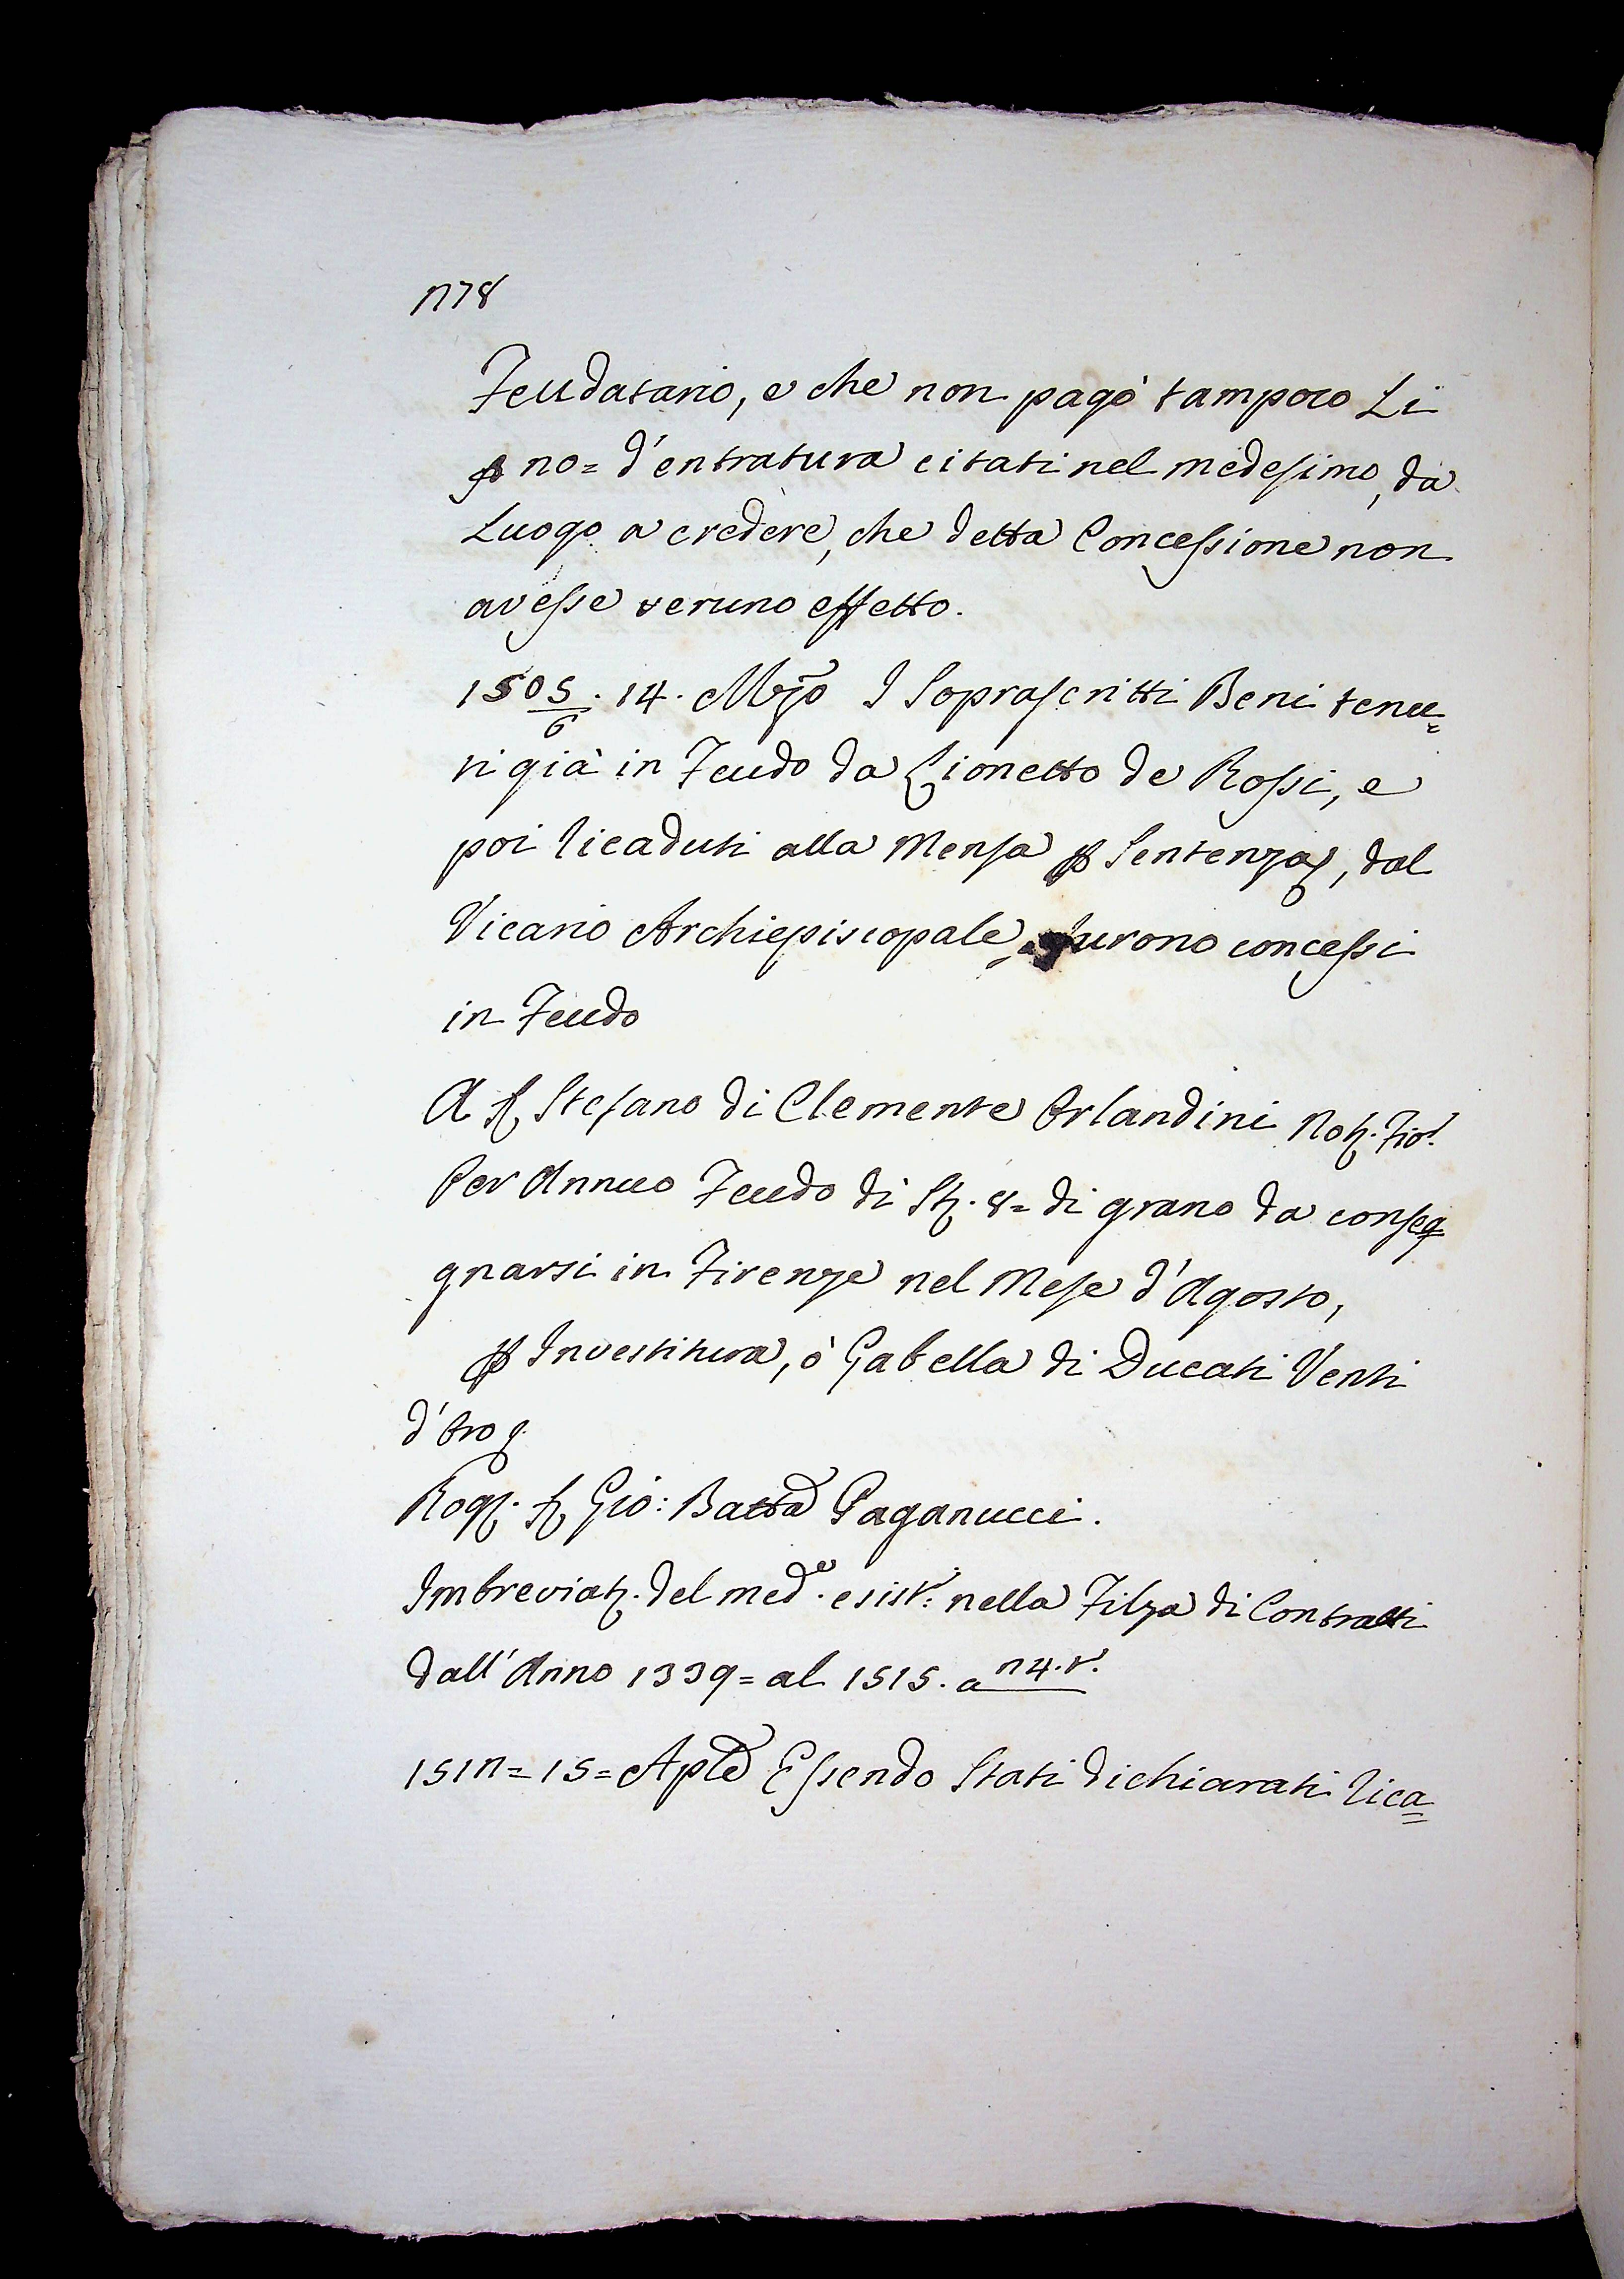 1178
Feudatario, e che non pagò tampoco Li
no= d'entratura citati nel medesimo, da
Luogo a credere, che detta Concessione non
avesse veruno effetto.
1505/6. 14. Mzo I Soprascritti Beni tenu=
ti già in Feudo da Lionetto de Rossi, e
poi ricaduti alla Mensa p Sentenza, dal
Vicario Archiepiscopale, furono concessi
in Feudo
A Sr Stefano di Clemente Orlandini Not. Fior.
Per Annuo Feudo di St. 8= di grano da conse
gnarsi in Firenze nel Mese d'Agosto,
p Investitura, ò Gabella di Ducati Venti
d'Oro
Rog. Sr Gio: Batta Paganucci.
Imbreviat. del mede. esist: nella Filza di Contratti
dall'Anno 1339= al 1515. a 114.t.
1511= 15= Aple Essendo Stati dichiarati rica=